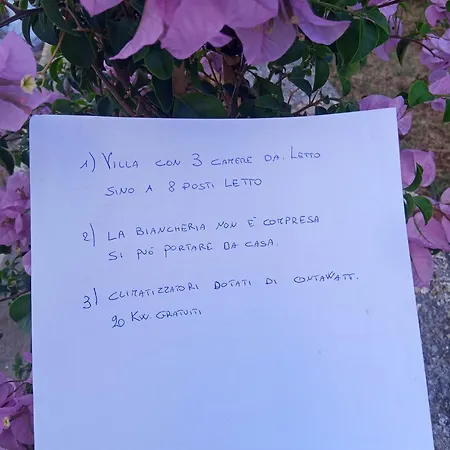 1) VILLA CON 3 CAMERE DA. LETTO
SINO A 8 POSTI LETTO
2) LA BIANCHERIA NON E' COMPRESA
SI PUÓ PORTARE DA CASA.
3) CLIMATIZZATORI DOTATI DI CONTAWATT.
20 KW. GRATUITI